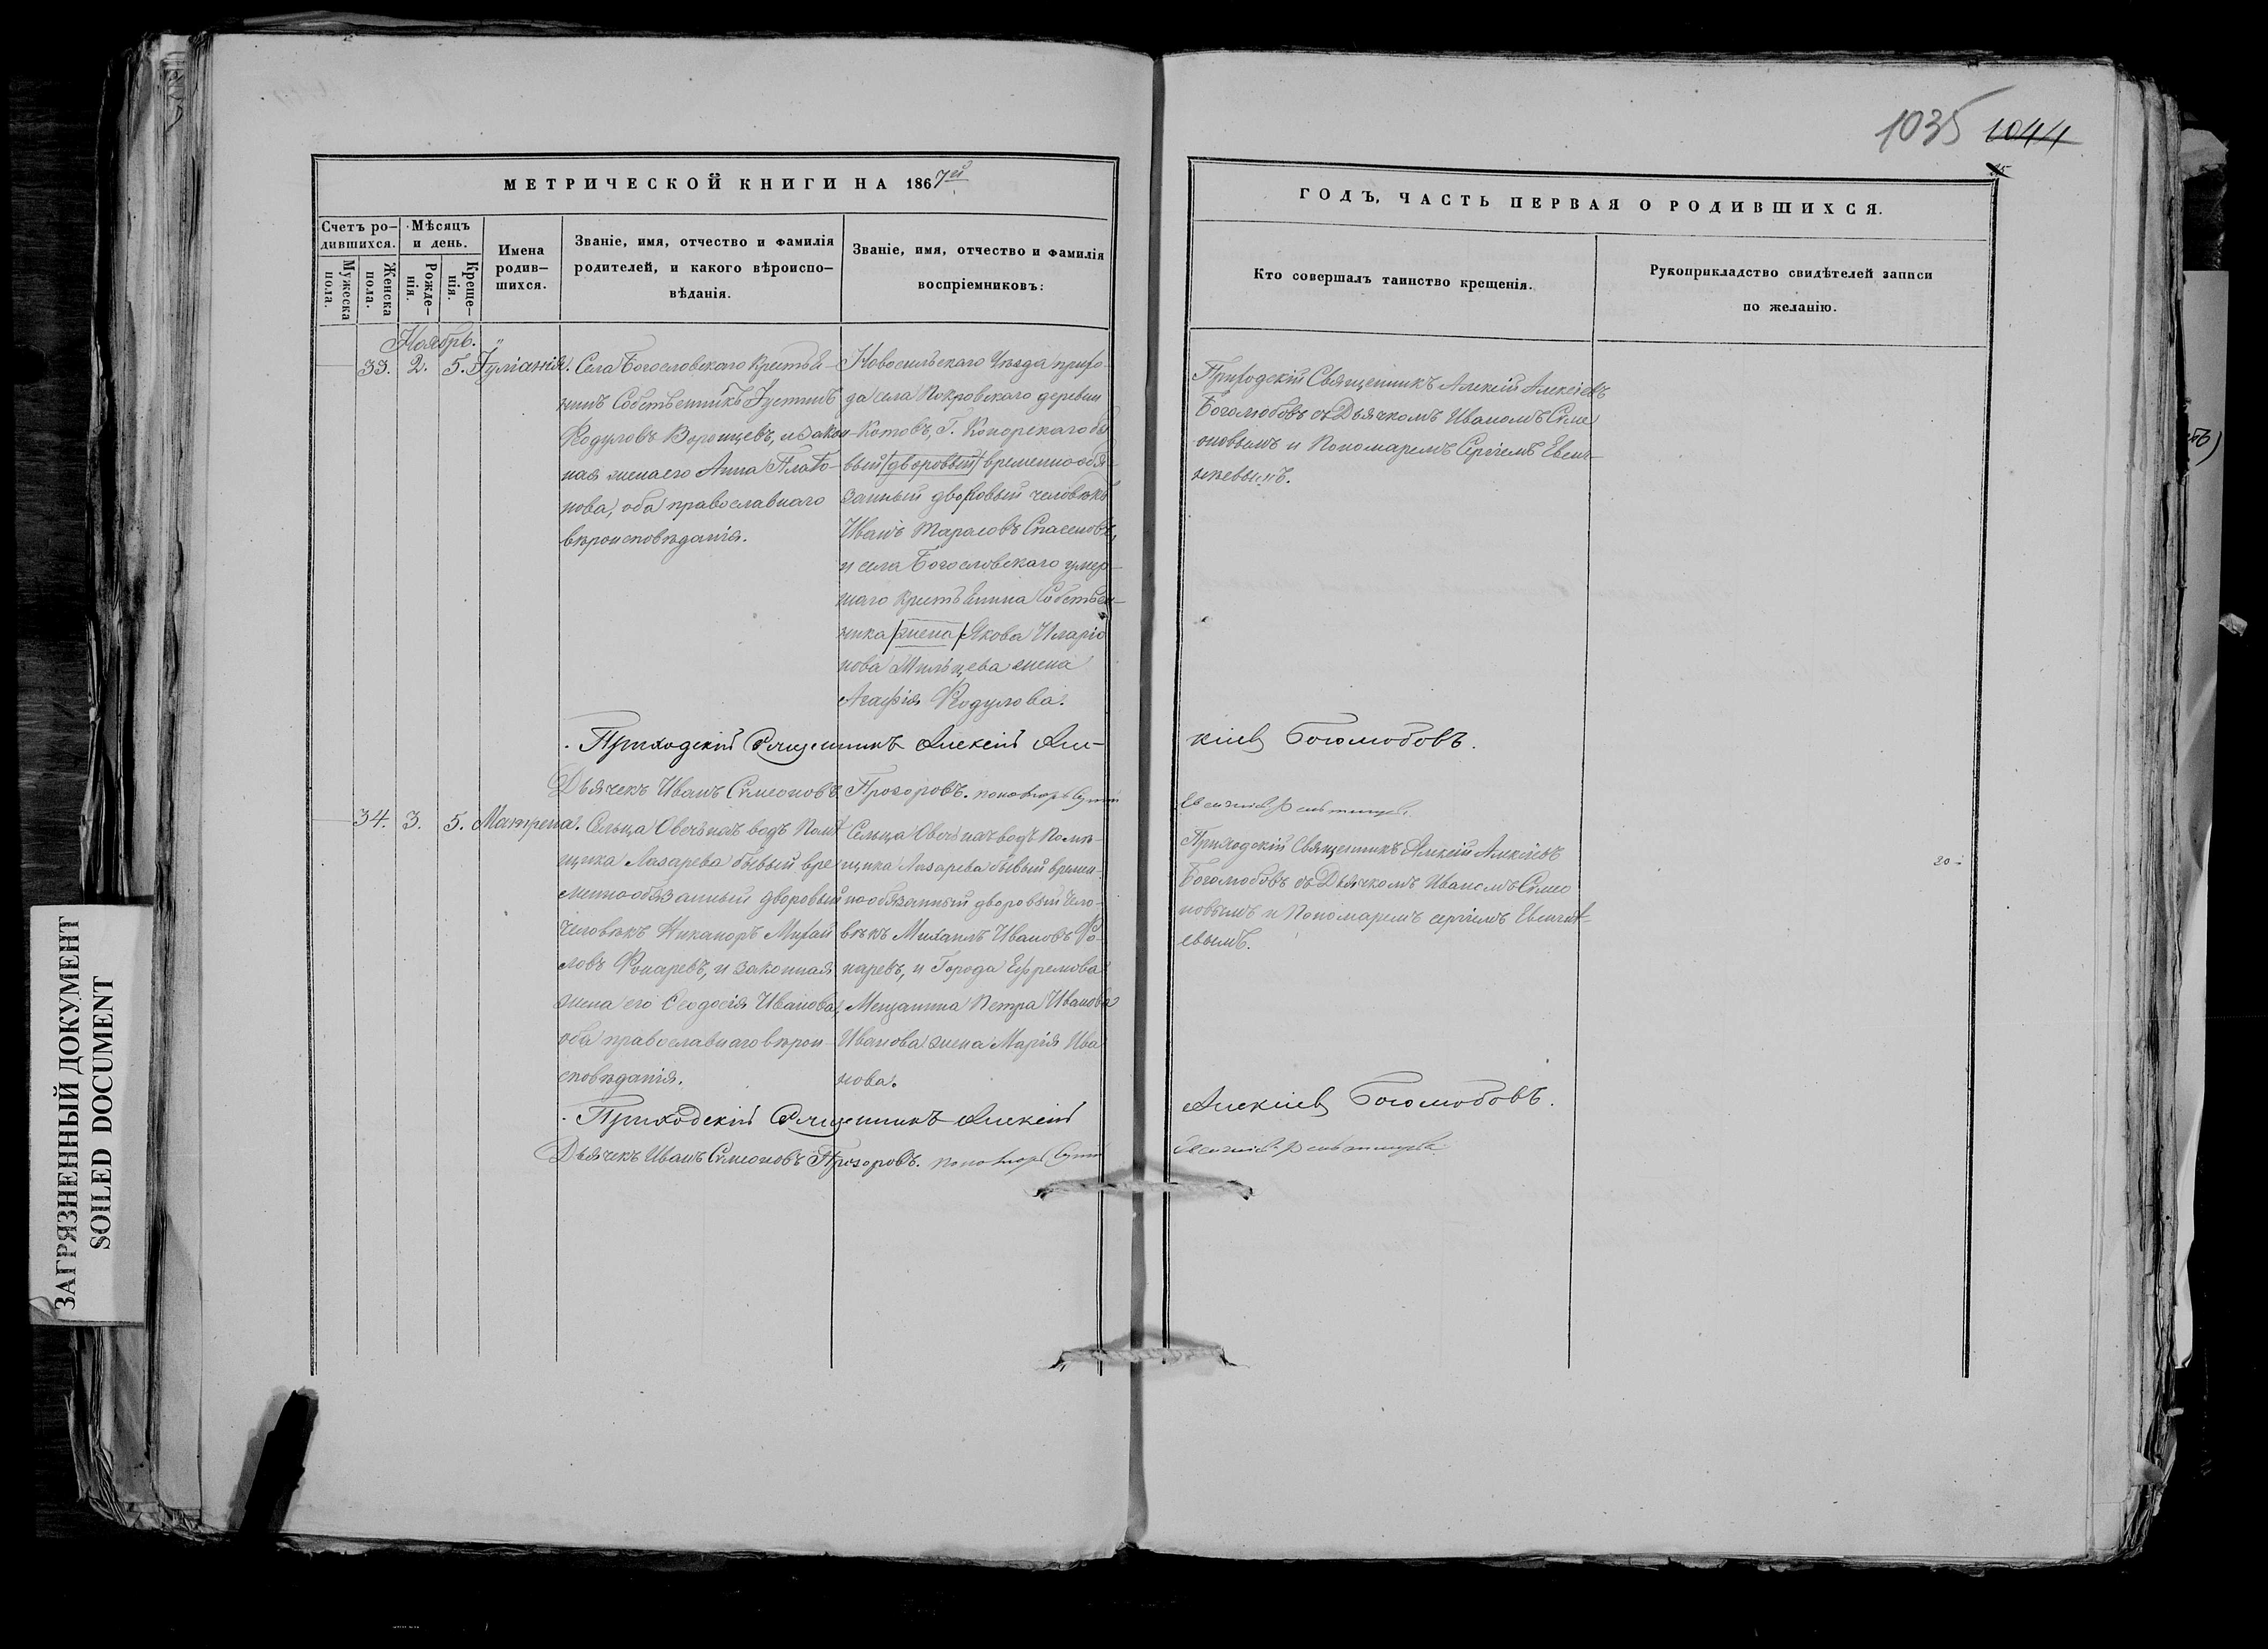 1035 1044
МЕТРИЧЕСКОЙ КНИГИ НА 1867й
ГОДЪ, ЧАСТЬ ПЕРВАЯ О РОДИВШИХСЯ.
Счетъ ро-
дившихся.
Мужеска
пола.
Женска
пола.
Мѣсяцъ
и день.
Рожде-
нія.
Креще-
нія.
Имена
родив-
шихся.
Званіе, имя, отчество и фамилія
родителей, и какого вѣроиспо-
вѣданія.
Званіе, имя, отчество и фамилія
воспріемниковъ:
Кто совершалъ таинство крещенія.
Рукоприкладство свидѣтелей записи
по желанію.
Ноябрь.
33. 2. 5. Іуліанія.
Села Богословскаго Крестья-
нинъ Собственникъ Іустинъ
Родуловъ Воронцевъ, и закон-
ная жена его Анна Плато-
нова, оба православнаго
вѣроисповѣданія.
Новосильскаго Уѣзда прихо-
да села Покровскаго деревни
Котовъ, Г. Конорскаго бы
вый (дворовый) временнообя-
занный дворовый человѣкъ
Иванъ Тарасовъ
и села Богословскаго умер-
шаго крестьянина Собствен-
ника (жена) Якова Иларіо
нова Мильцева жена
Агафія Родулова.
Приходскій Священникъ Алексій Алексіевъ
Боголюбовъ съ Дьячкомъ Иваномъ Симе
оновымъ и Пономаремъ Сергіемъ Евген-
іевымъ.
Приходскій Священникъ Алексій Але-
ксіев Боголюбовъ.
Дьячекъ Иванъ Симеоновъ Прозоровъ.
34. 3. 5. Матрена.
Сельца
щика Лазарева бывый вре
меннообязанный дворовый
человѣкъ Никаноръ Михай
ловъ Фонаревъ, и законная
жена его Ѳеодосія Иванова,
оба православнаго вѣрои-
сповѣданія.
Сельца
щика Лазарева бывый времен
нообязанный дворовый чело-
вѣкъ Михаилъ Ивановъ Фо-
наревъ, и Города Ефремова
Мещанина Петра Иванова
Иванова жена Марія Ива
нова.
Приходскій Священникъ Алексій Алексіевъ
Боголюбовъ съ Дьячкомъ Иваномъ Симео
новымъ и Пономаремъ Сергіемъ Евгені-
евымъ.
20
Приходскій Священникъ Алексій
Алексіев Боголюбовъ.
Дьячекъ Иванъ Симеоновъ Прозоровъ.
ЗАГРЯЗНЕННЫЙ ДОКУМЕНТ
SOILED DOCUMENT